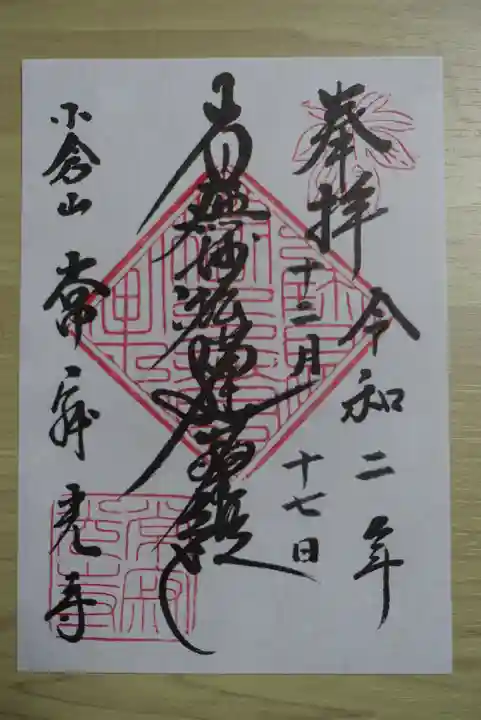 奉拝 令和二年
十二月 十七日
南無妙法蓮華経
小倉山 常寂光寺